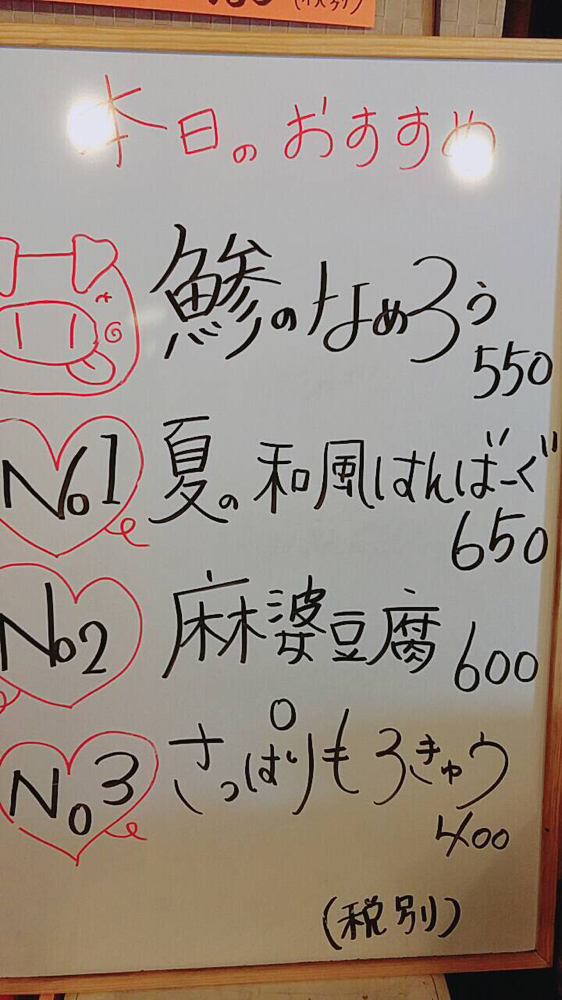 本日のおすすめ
鯵のなめろう
550
No1 夏の和風はんばーぐ
650
No2 麻婆豆腐 600
No3 さっぱりもろきゅう
400
(税別)